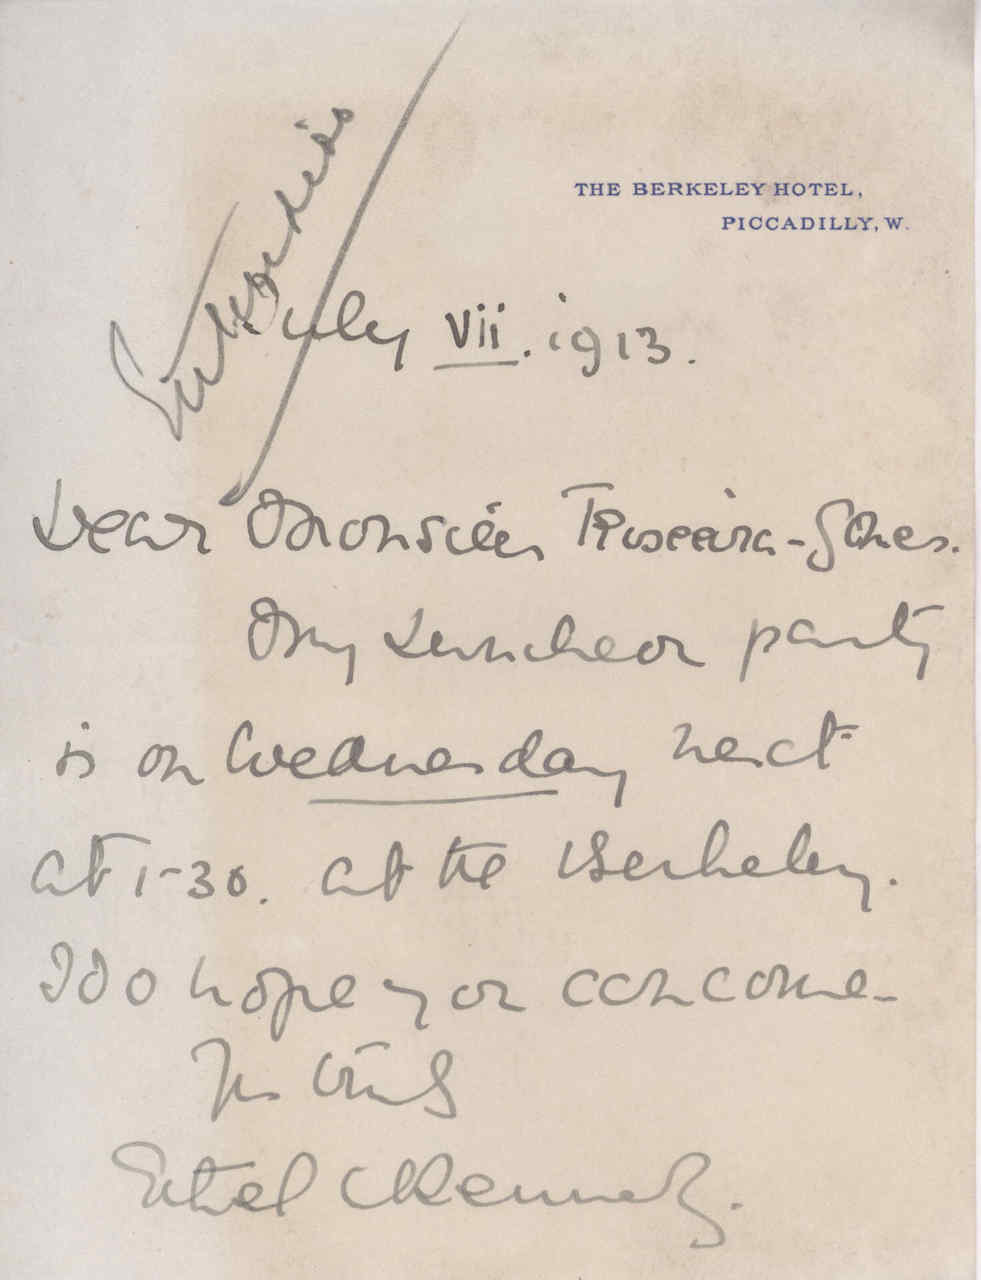 THE BERKELEY HOTEL,
PICCADILLY, W.
July vii. 1913.
Dear Monsieur Teixeira-Gomes.
My Luncheon party
is on Wednesday next
at 1-30. at the Berkeley.
I do hope you can come -
Ethel